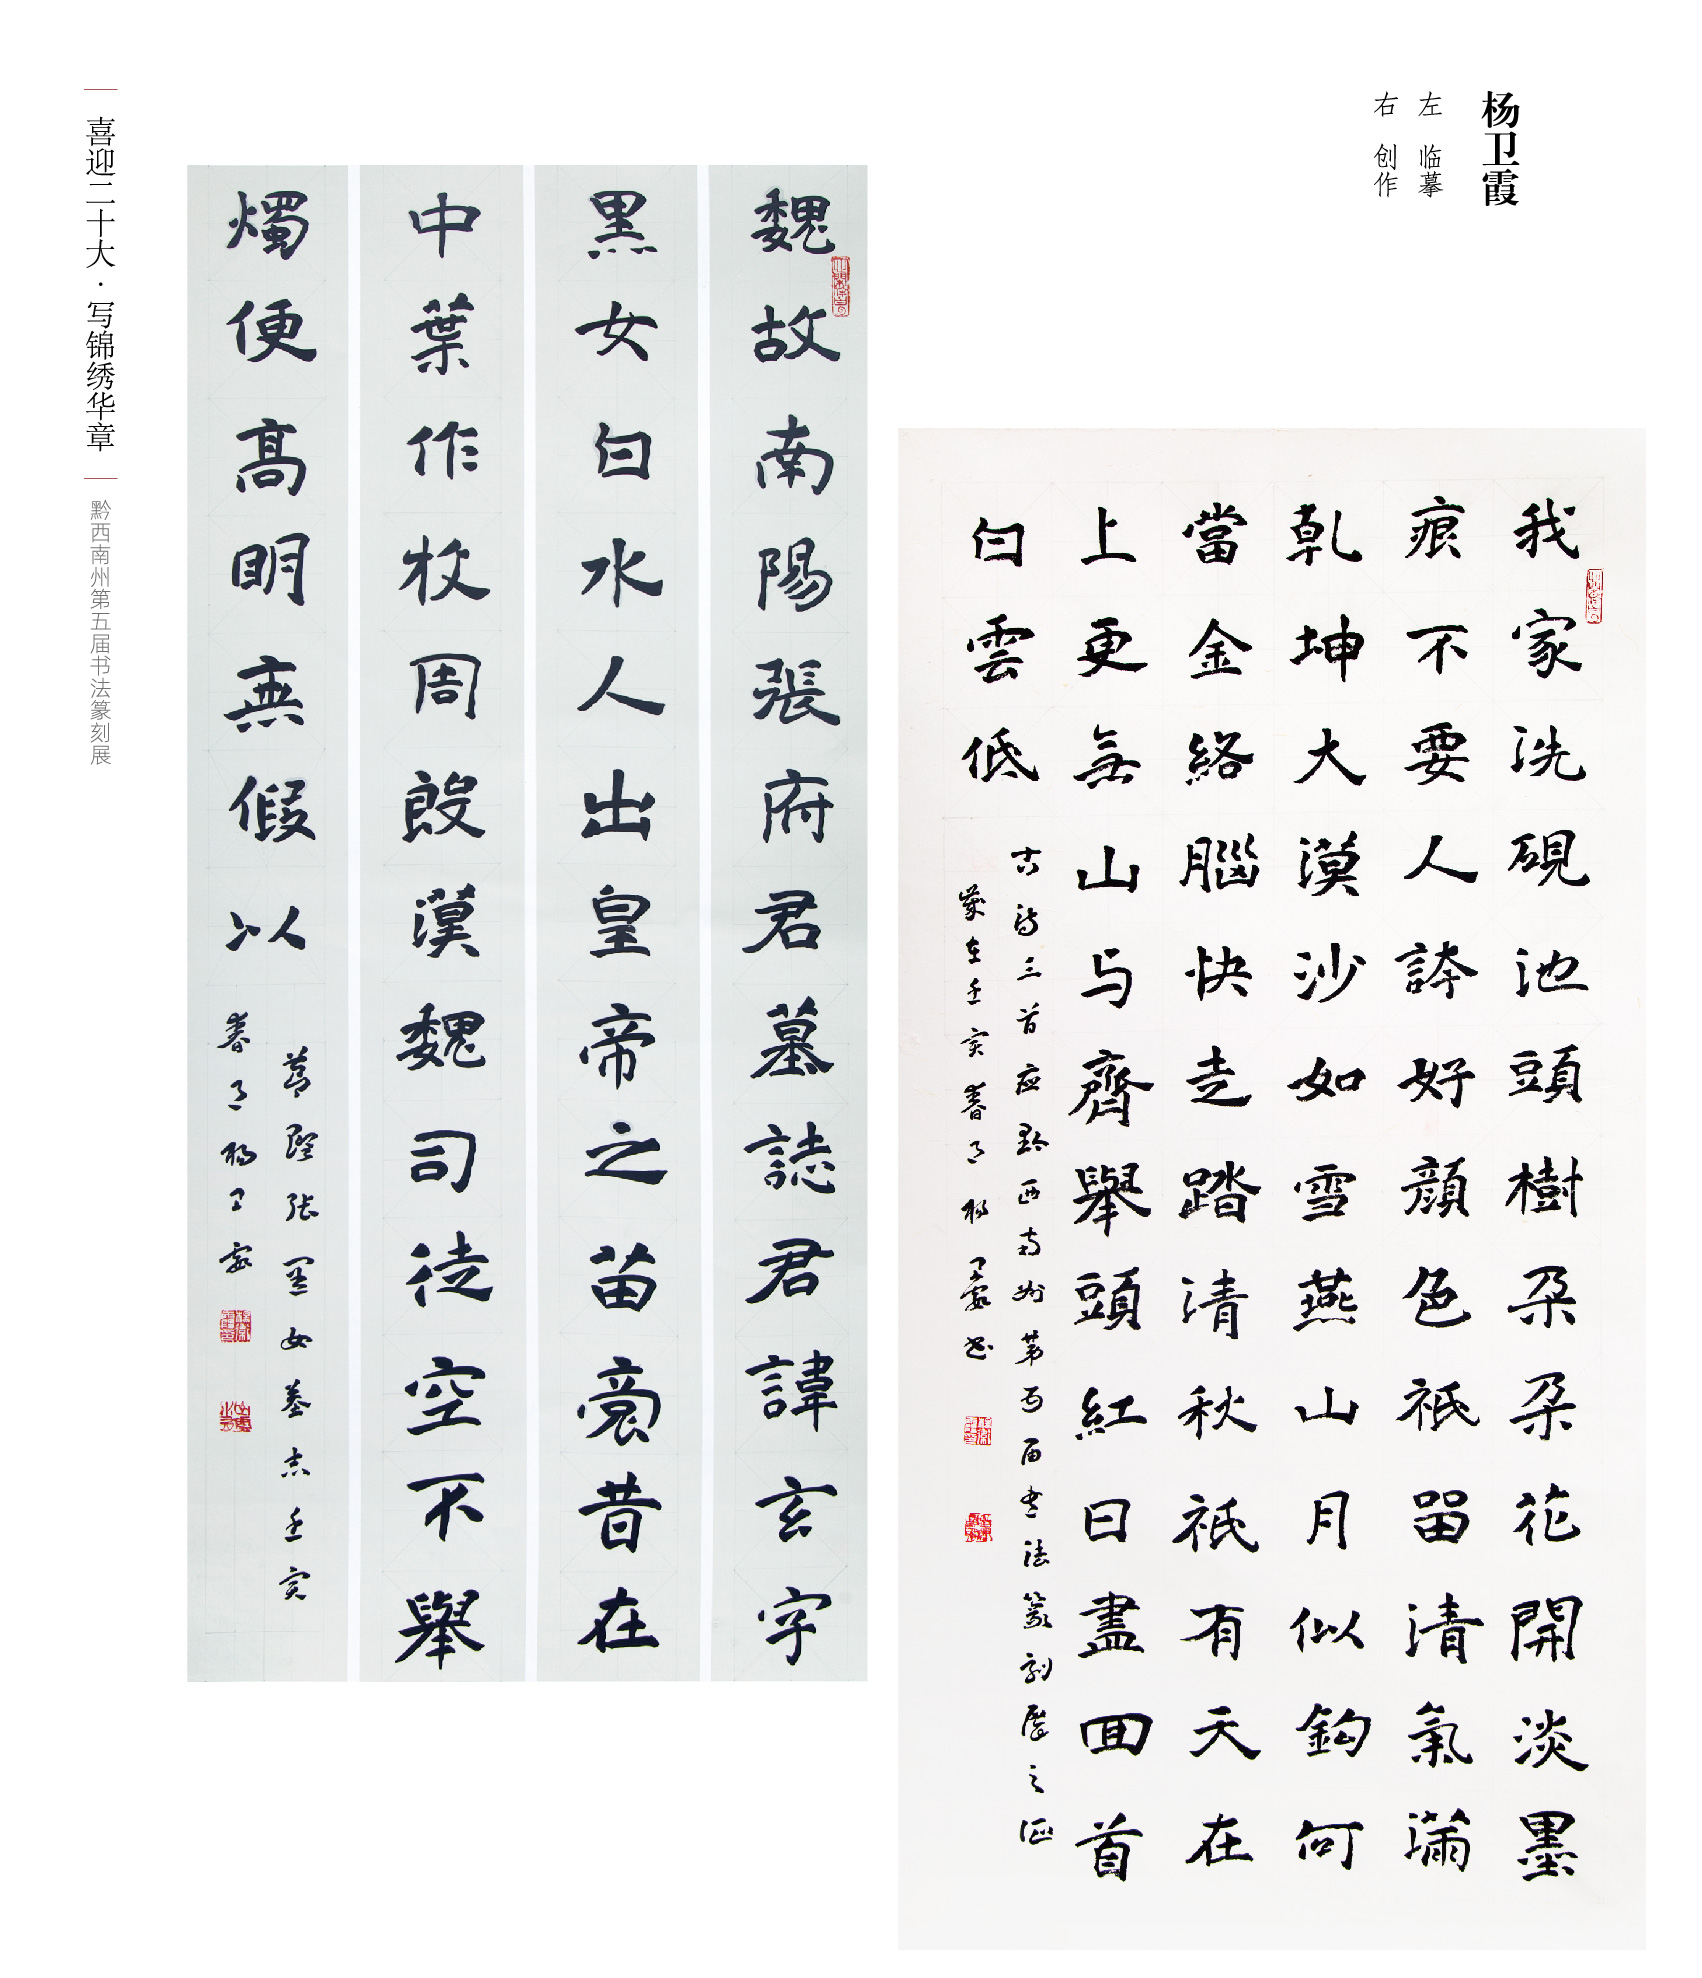 杨卫霞
左 临摹
右 创作
我家洗砚池頭樹朶朶花開淡墨
痕不要人誇好顏色祇留清氣滿
乾坤大漠沙如雪燕山月似鈎何
當金絡腦快走踏清秋祇有天在
上更無山与齊舉頭紅日盡回首
白雲低
古詩三首应黔西南州第五届书法篆刻展之征
歲在壬寅春月杨卫霞书
魏故南陽張府君墓誌君諱玄字
黑女白水人出皇帝之苗裔昔在
中葉作牧周殷漢魏司徒空不舉
燭便高明無假以
节臨张黑女墓志壬寅
春月杨卫霞
喜迎二十大·写锦绣华章
黔西南州第五届书法篆刻展